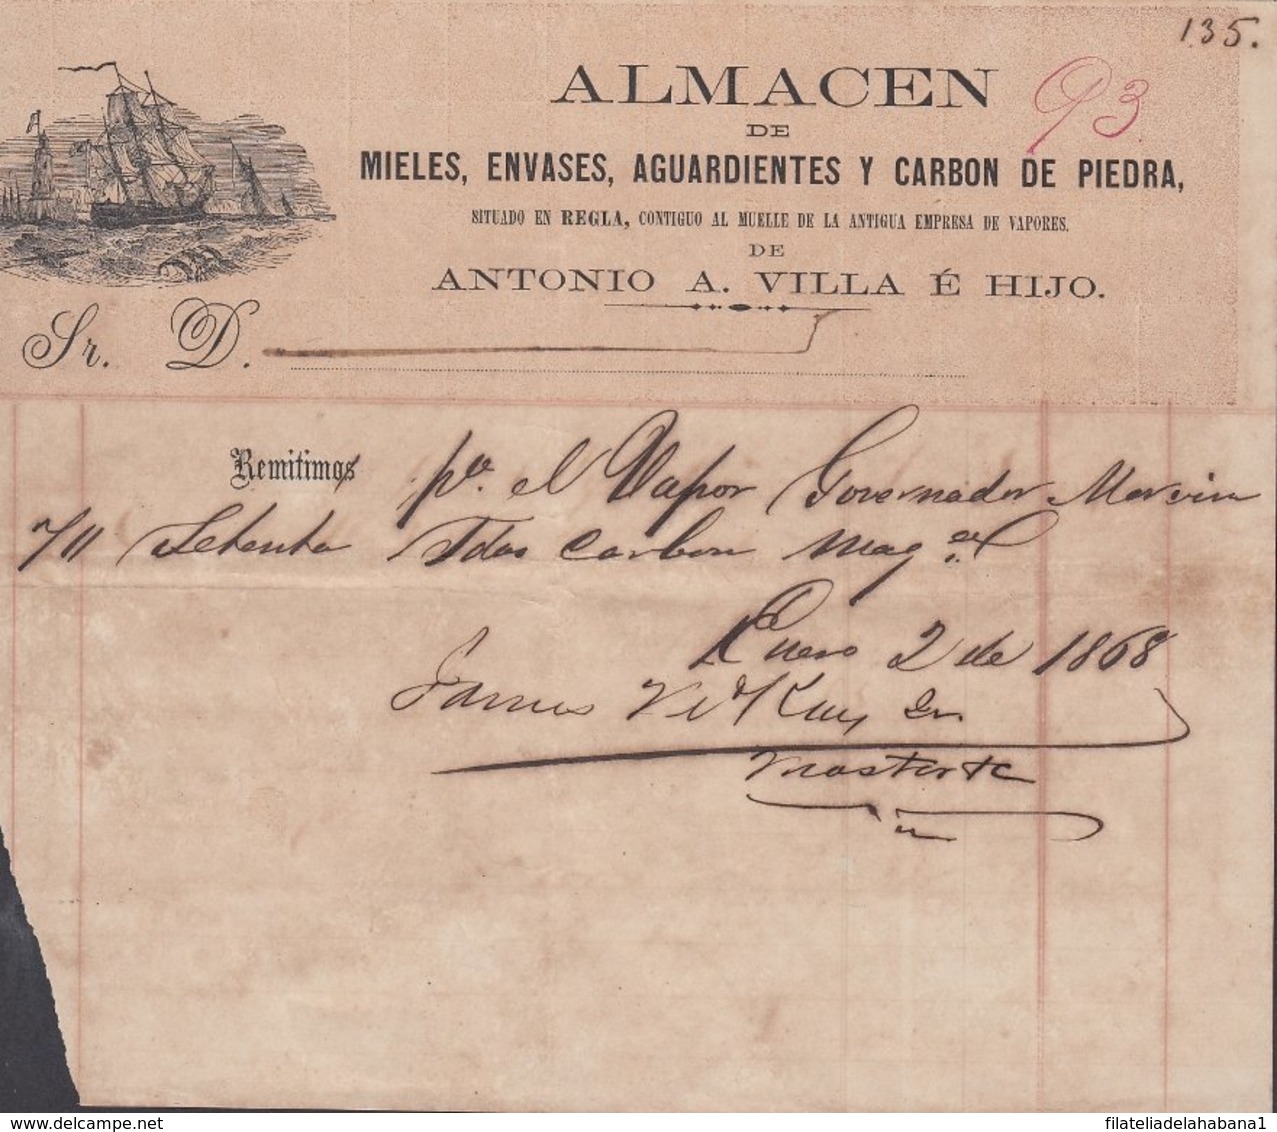 135.
93
ALMACEN
DE
MIELES, ENVASES, AGUARDIENTES Y CARBON DE PIEDRA,
SITUADO EN REGLA, CONTIGUO AL MUELLE DE LA ANTIGUA EMPRESA DE VAPORES.
DE
ANTONIO A. VILLA É HIJO.
Sr. D.
Remitimos pr. el Vapor Governador Marvin
70 Setenta Tdas carbon
Enero 2 de 1868
James
filateliadelahabana1